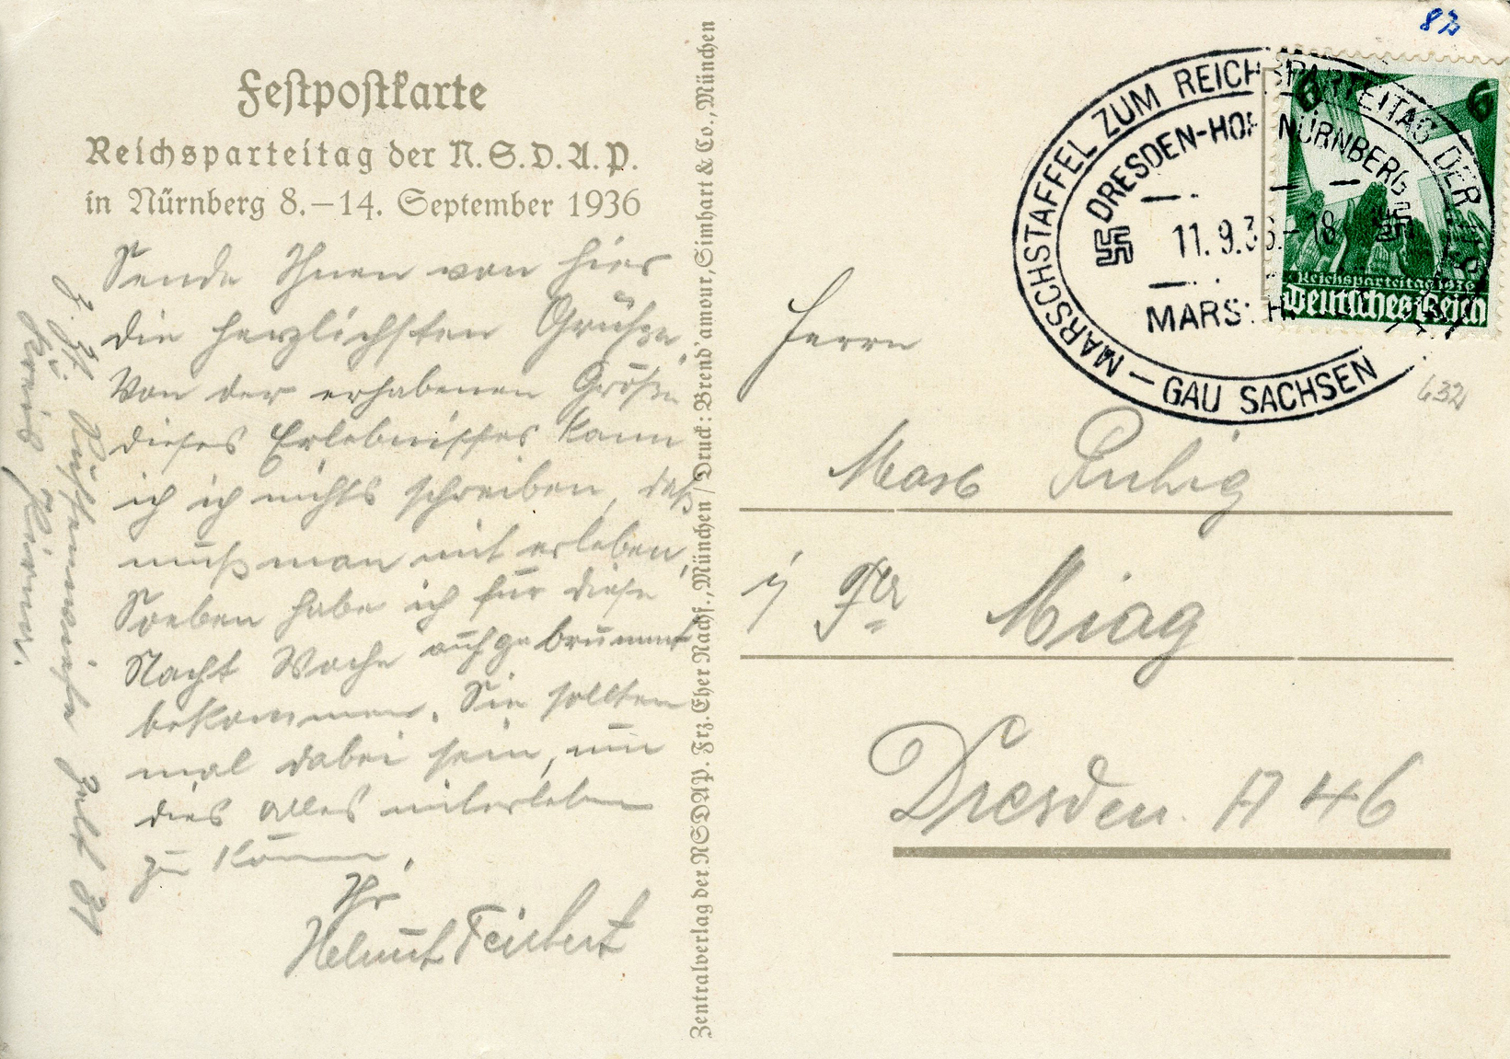 Festpostkarte
Reichsparteitag der N.S.D.A.P.
in Nürnberg 8.–14. September 1936
Sende Ihnen von hier
die herzlichsten Grüße.
Von der erhabenen Größe
dieses Erlebnisses kann
ich ich nichts schreiben, daß
muß man mit erleben,
Soeben habe ich für diese
Nacht Wache aufgebrummt
bekommen. Sie sollten
mal dabei sein, um
dies alles miterleben
zu können.
Ihr
Helmut
z. Zt. Zelt 81
Zentralverlag der NSDAP. Frz. Eher Nachf., München / Druck: Brend'amour, Simhart & Co., München
87
MARSCHSTAFFEL ZUM REICHSPARTEITAG DER
DRESDEN-HOF NÜRNBERG
11.9.36.–18
MARSCH
– GAU SACHSEN
6
6
Reichsparteitag 1936
Deutsches Reich
632
Herrn
Ruhig
Miag
Dresden. A 46